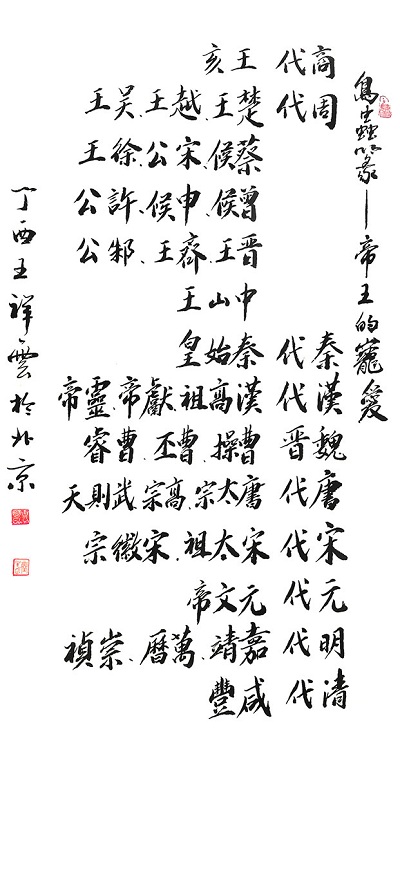 鳥蟲篆—帝王的寵愛
商代 王亥
周代 楚王、越王、吴王
蔡候、宋公、徐王
曾候、申候、許公
晋王、齊王、邾公
中山王
秦代 秦始皇
漢代 漢高祖、獻帝、靈帝
魏晋 曹操、曹丕、曹睿
唐代 唐太宗、高宗、武則天
宋代 宋太祖、宋徽宗
元代 元文帝
明代 嘉靖、萬曆、崇禎
清代 咸豐
丁酉王祥雲於北京